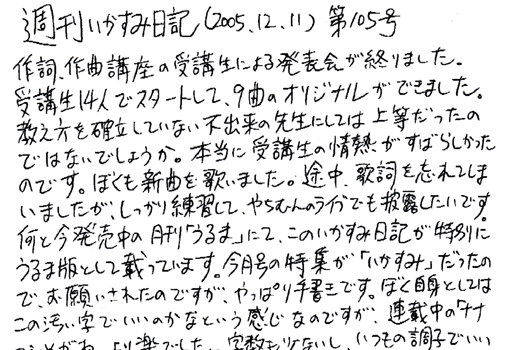 週刊いかすみ日記(2005.12.11) 第105号
作詞、作曲講座の受講生による発表会が終りました。
受講生14人でスタートして、9曲のオリジナルができました。
教え方を確立していない不出来の先生にしては上等だったの
ではないでしょうか。本当に受講生の情熱がすばらしかった
のです。ぼくも新曲を歌いました。途中、歌詞を忘れてしま
いましたが、しっかり練習して、やちむんのライブでも披露したいです。
何と今発売中の月刊「うるま」にて、このいかすみ日記が特別に
うるま版として載っています。今月号の特集が「いかすみ」だったの
で、お願いされたのですが、やっぱり手書きです。ぼく自身としては
この汚い字でいいのかなという感じなのですが、連載中の「ナナ
より楽でした。字数も少ないし、いつもの調子でいい